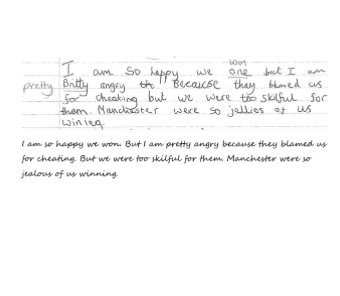 won
I am so happy we one but I am
pretty Britty angry th Because they blmed us
for cheating but we were too skilful for
them. Manchester were so jellies of us
wining.
I am so happy we won. But I am pretty angry because they blamed us
for cheating. But we were too skilful for them. Manchester were so
jealous of us winning.